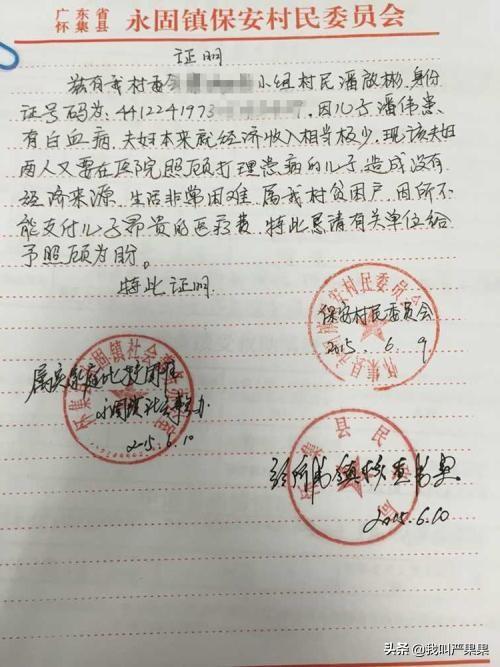 广东省
怀集县
永固镇保安村民委员会
证明
兹有我村委会 小组村民潘啟彬,身份
证号码为:4412241973 ,因儿子潘伟患
有白血病,夫妇本来就经济收入相当极少,现该夫妇
两人又要在医院照顾打理患病的儿子,造成没有
经济来源,生活非常困难,属我村贫困户,因所不
能支付儿子昂贵的医疗费,特此恳请有关单位给
予照顾为盼。
特此证明.
保安村民委员会
2015. 6. 9
属该家庭比较困难
永固镇社会事务办
2015.6.10
怀集县民政局
2015.6.10
头条 @我叫严果果